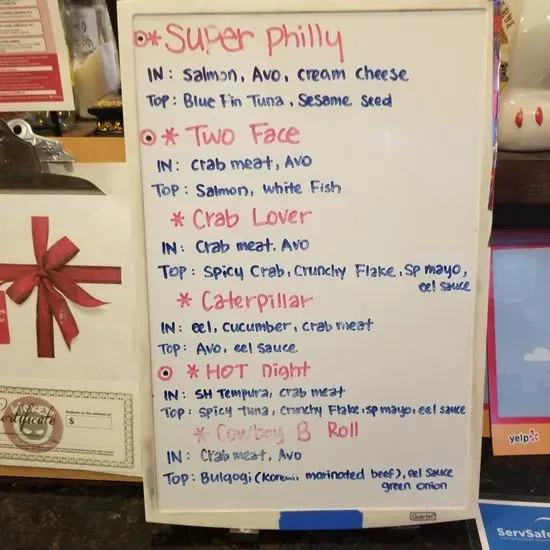 * Super Philly
IN: Salmon, Avo, cream cheese
TOP: Blue Fin Tuna, Sesame Seed
* Two Face
IN: Crab meat, Avo
TOP: Salmon, white Fish
* Crab Lover
IN: Crab meat, Avo
TOP: Spicy Crab, Crunchy Flake, Sp mayo,
eel sauce
* Caterpillar
IN: eel, cucumber, crab meat
TOP: Avo, eel sauce
* HOT night
IN: SH Tempura, crab meat
TOP: Spicy tuna, Crunchy Flake, sp mayo, eel sauce
* Cowboy B Roll
IN: Crab meat, Avo
TOP: Bulgogi (Korean marinated beef), eel sauce
green onion
Quartet
Certificate
$
yelp
ServSafe